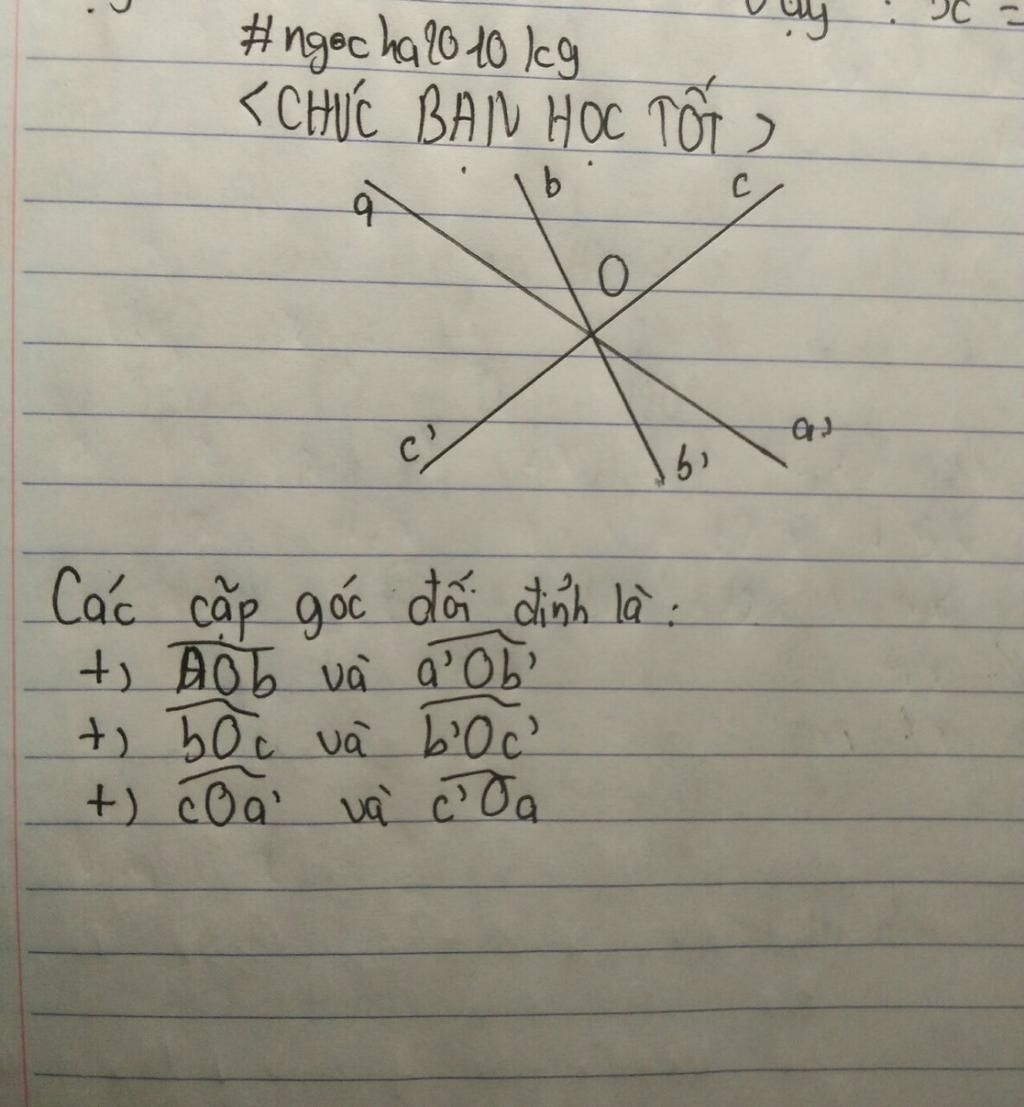 Vậy : x =
#ngocha2010kg
<CHÚC BẠN HỌC TỐT>
a b c
O
c' b' a'
Các cặp góc đối đỉnh là:
+) AOb và a'Ob'
+) bOc và b'Oc'
+) cOa' và c'Oa